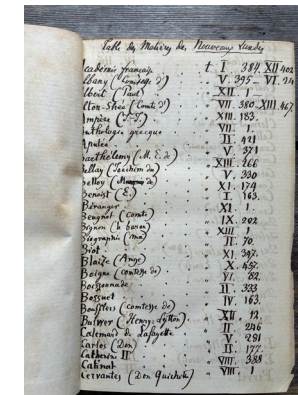 Table des Matières des Nouveaux Lundis
Académie française t I. 384. XII 402
Albany (Comtesse d') V. 395 — VI. 24
Albert (Paul) XII. 1 —
Alton-Shée (Comte d') VII. 380 — XIII 467.
Ampère (J.-J.) XIII. 183.
Anthologie grecque VII. 1.
Apulée II. 421
Barthélemy (M. E. de) V. 371
Bellay (Joachim du) XIII. 266
Belloy (Marquis de) V. 330
Benoist (E.) XI. 174
Béranger I. 163.
Beugnot (comte) XI. 1.
Bignon (le baron) IX. 202
Biographie (ma) XIII 1
Biot II. 70.
Blaize (Ange) XI. 347.
Boigne (comtesse de) X. 457.
Boissonade VI. 82.
Bossuet II. 333
Boufflers (comtesse de) IV. 163.
Bulwer (Henry-Lytton) XII. 12.
Calemard de Lafayette II. 246
Carlos (Don) V. 281
Catherine II II. 177.
Catinat VIII. 388
Cervantes (Don Quichotte) VIII. 1.